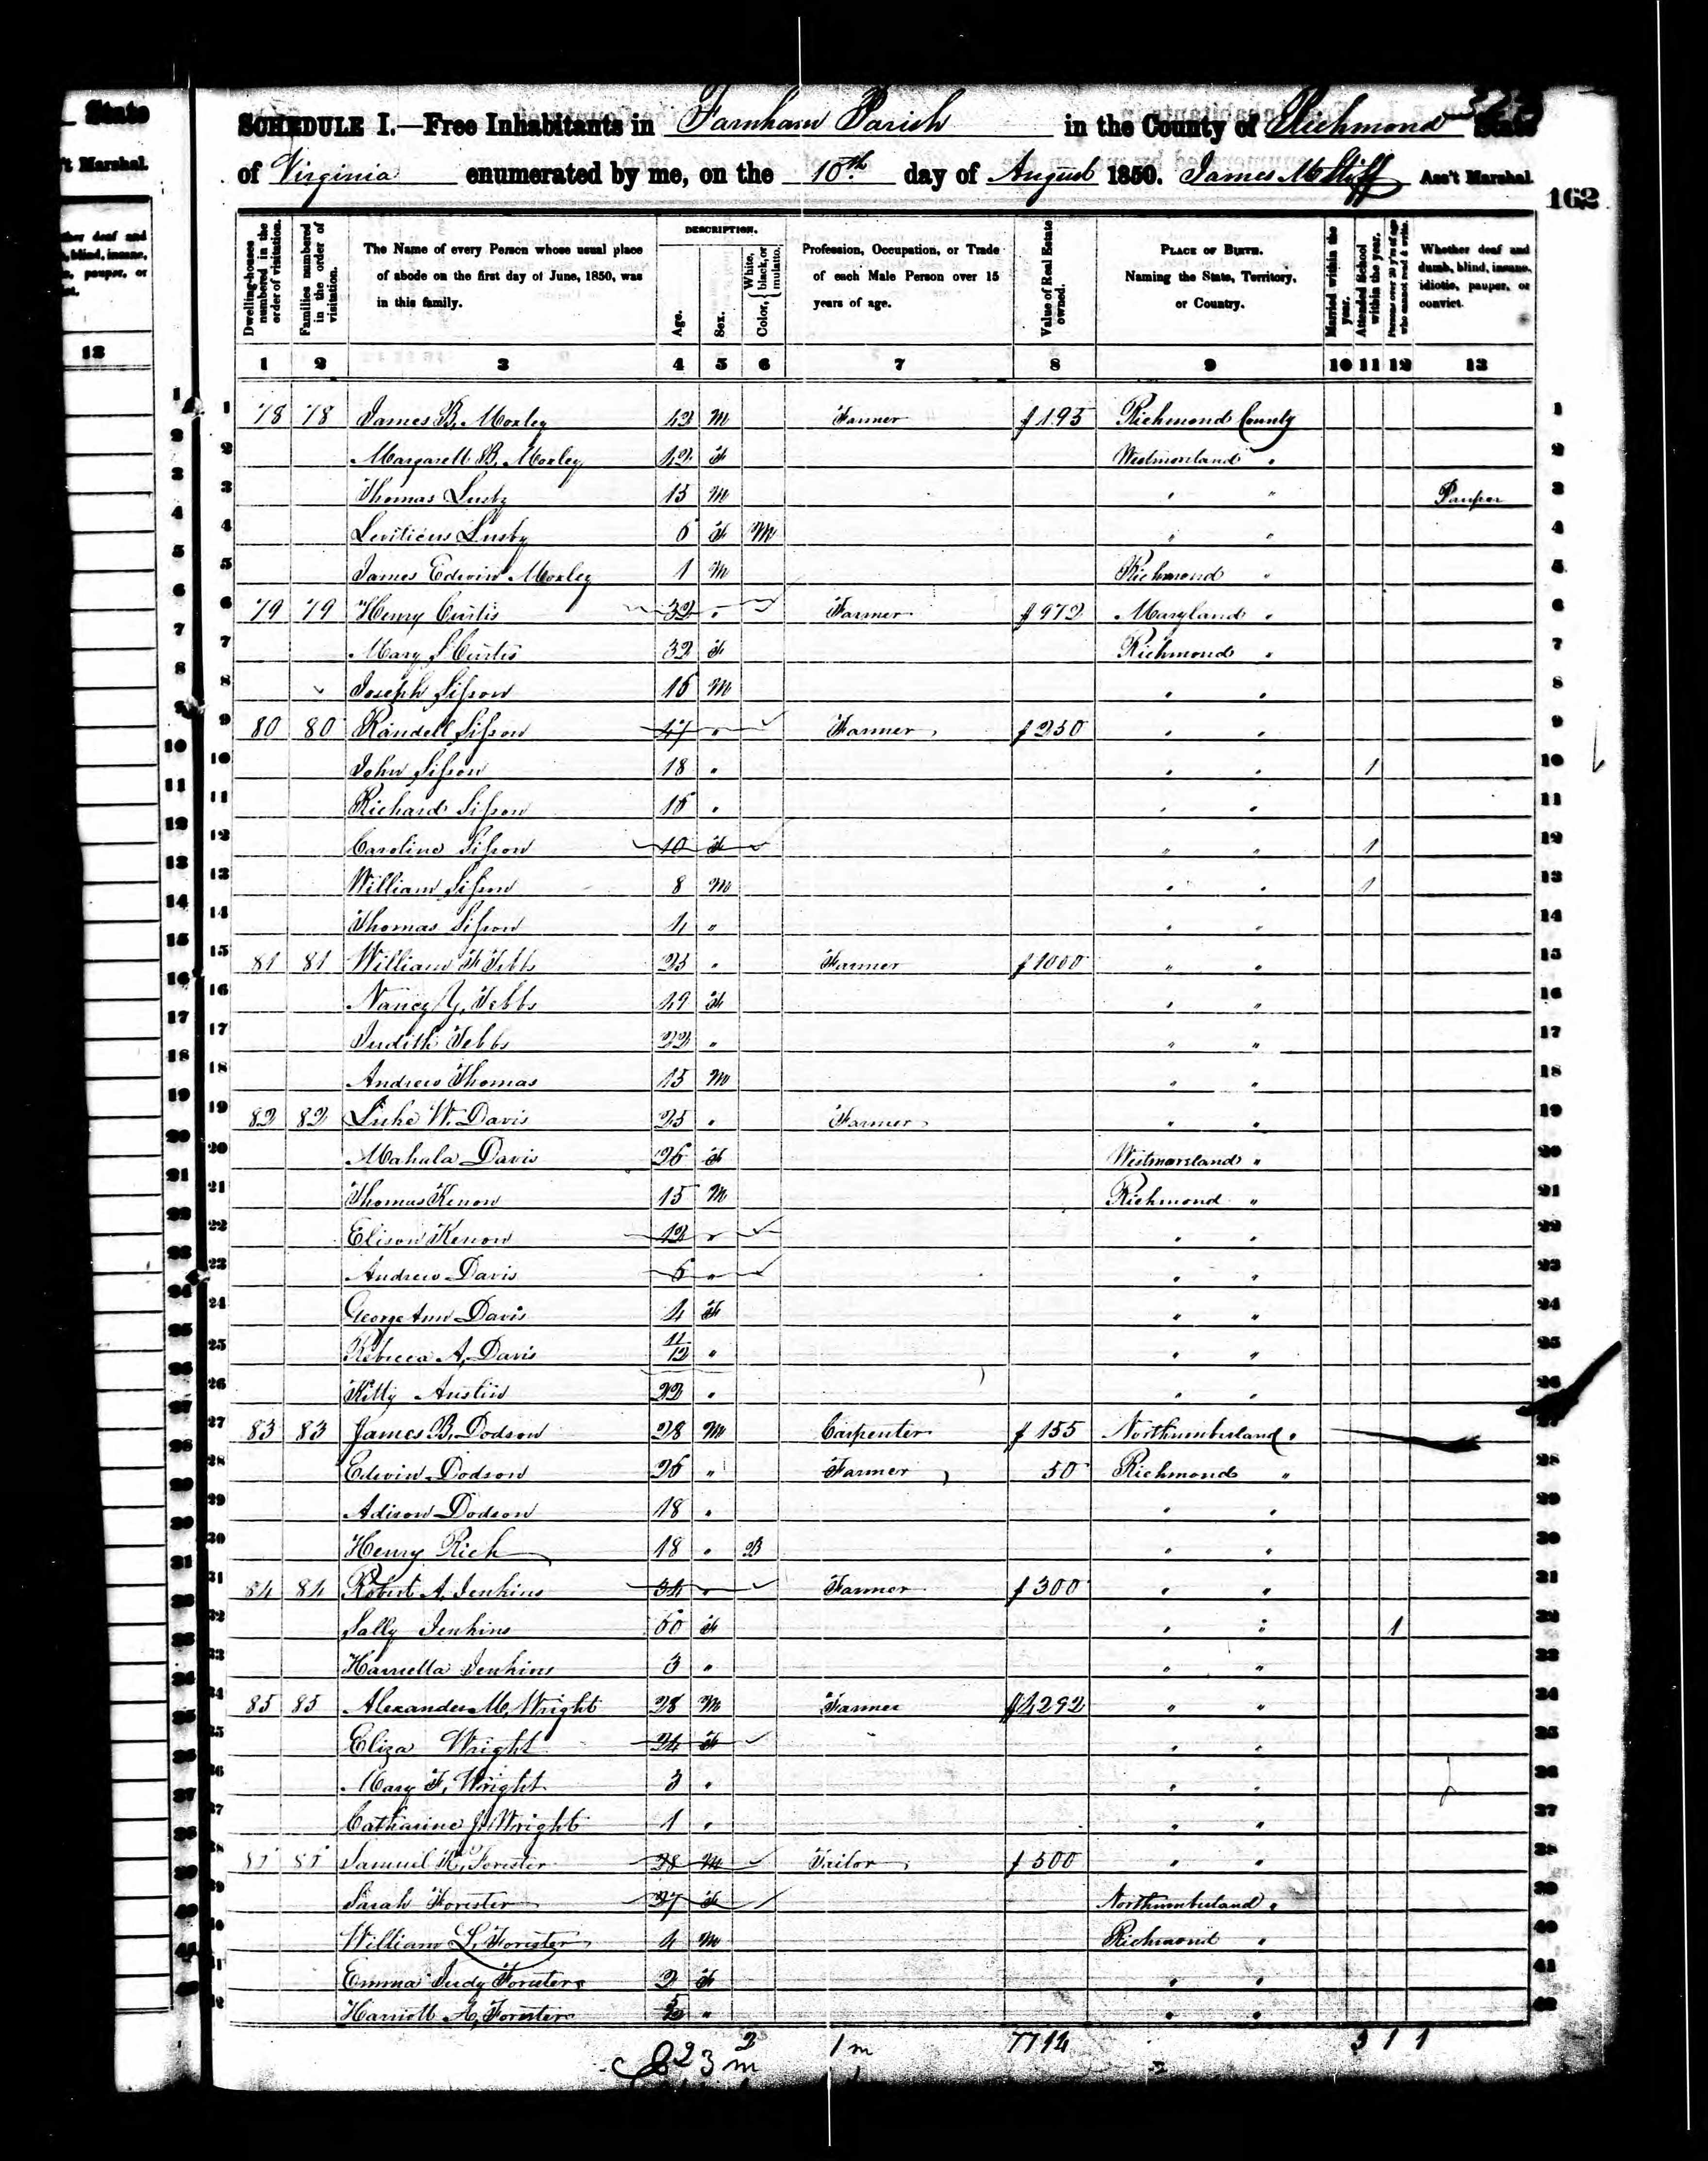 State
't Marshal.
ther deaf and
, blind, insane,
, pauper, or
13
SCHEDULE I.—Free Inhabitants in Farnham Parish in the County of Richmond State
of Virginia enumerated by me, on the 10th day of August 1850. James M Stiff Ass't Marshal.
162
Dwelling-houses numbered in the order of visitation.
Families numbered in the order of visitation.
The Name of every Person whose usual place of abode on the first day of June, 1850, was in this family.
DESCRIPTION.
Age.
Sex.
Color, { White, black, or mulatto.
Profession, Occupation, or Trade of each Male Person over 15 years of age.
Value of Real Estate owned.
PLACE OF BIRTH. Naming the State, Territory, or Country.
Married within the year.
Attended School within the year.
Persons over 20 y'rs of age who cannot read & write.
Whether deaf and dumb, blind, insane, idiotic, pauper, or convict.
1 2 3 4 5 6 7 8 9 10 11 12 13
1 78 78 James B. Moxley 42 M Farmer $195 Richmond County 1
2 Margarett B. Moxley 42 F Westmoreland " 2
3 Thomas Lusby 15 M " " Pauper 3
4 Leviticus Lusby 6 F M " " 4
5 James Edwin Moxley 1 M Richmond " 5
6 79 79 Henry Curtis 32 " Farmer $972 Maryland " 6
7 Mary S Curtis 32 F Richmond " 7
8 Joseph Sisson 16 M " " 8
9 80 80 Randell Sisson 47 " Farmer $250 " " 9
10 John Sisson 18 " " " 1 10
11 Richard Sisson 16 " " " 11
12 Caroline Sisson 10 F " " 1 12
13 William Sisson 8 M " " 1 13
14 Thomas Sisson 4 " " " 14
15 81 81 William F Tebbs 25 " Farmer $1000 " " 15
16 Nancy Y. Tebbs 49 F " " 16
17 Judith Tebbs 22 " " " 17
18 Andrew Thomas 15 M " " 18
19 82 82 Luke W. Davis 25 " Farmer " " 19
20 Mahala Davis 26 F Westmoreland " 20
21 Thomas Kenon 15 M Richmond " 21
22 Elison Kenon 12 " " " 22
23 Andrew Davis 6 " " " 23
24 George Ann Davis 4 F " " 24
25 Rebecca A. Davis 11/12 " " " 25
26 Kitty Austin 22 " " " 26
27 83 83 James B. Dodson 28 M Carpenter $155 Northumberland " 27
28 Edwin Dodson 26 " Farmer 50 Richmond " 28
29 Adison Dodson 18 " " " 29
30 Henry Rich 18 " B " " 30
31 84 84 Robert A. Jenkins 34 " Farmer $300 " " 31
32 Sally Jenkins 60 F " " 1 32
33 Harriella Jenkins 3 " " " 33
34 85 85 Alexander M. Wright 28 M Farmer $4292 " " 34
35 Eliza Wright 24 F " " 35
36 Mary F. Wright 3 " " " 36
37 Catharine J. Wright 1 " " " 37
38 Samuel R. Forester 28 M Tailor $500 " " 38
39 Sarah Forester 27 F Northumberland " 39
40 William L. Forester 4 M Richmond " 40
41 Emma Judy Forester 2 F " " 41
42 Harriott A. Forester " " " 42
23 m 2 1 m 7714 3 1 1